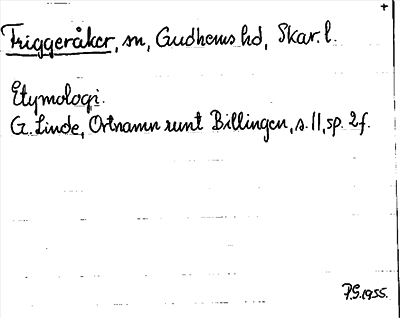 +
Friggeråker, sn, Gudhems hd, Skar. l.
Etymologi.
G. Linde, Ortnamn runt Billingen, s. 11, sp. 2 f.
P.G. 1955.